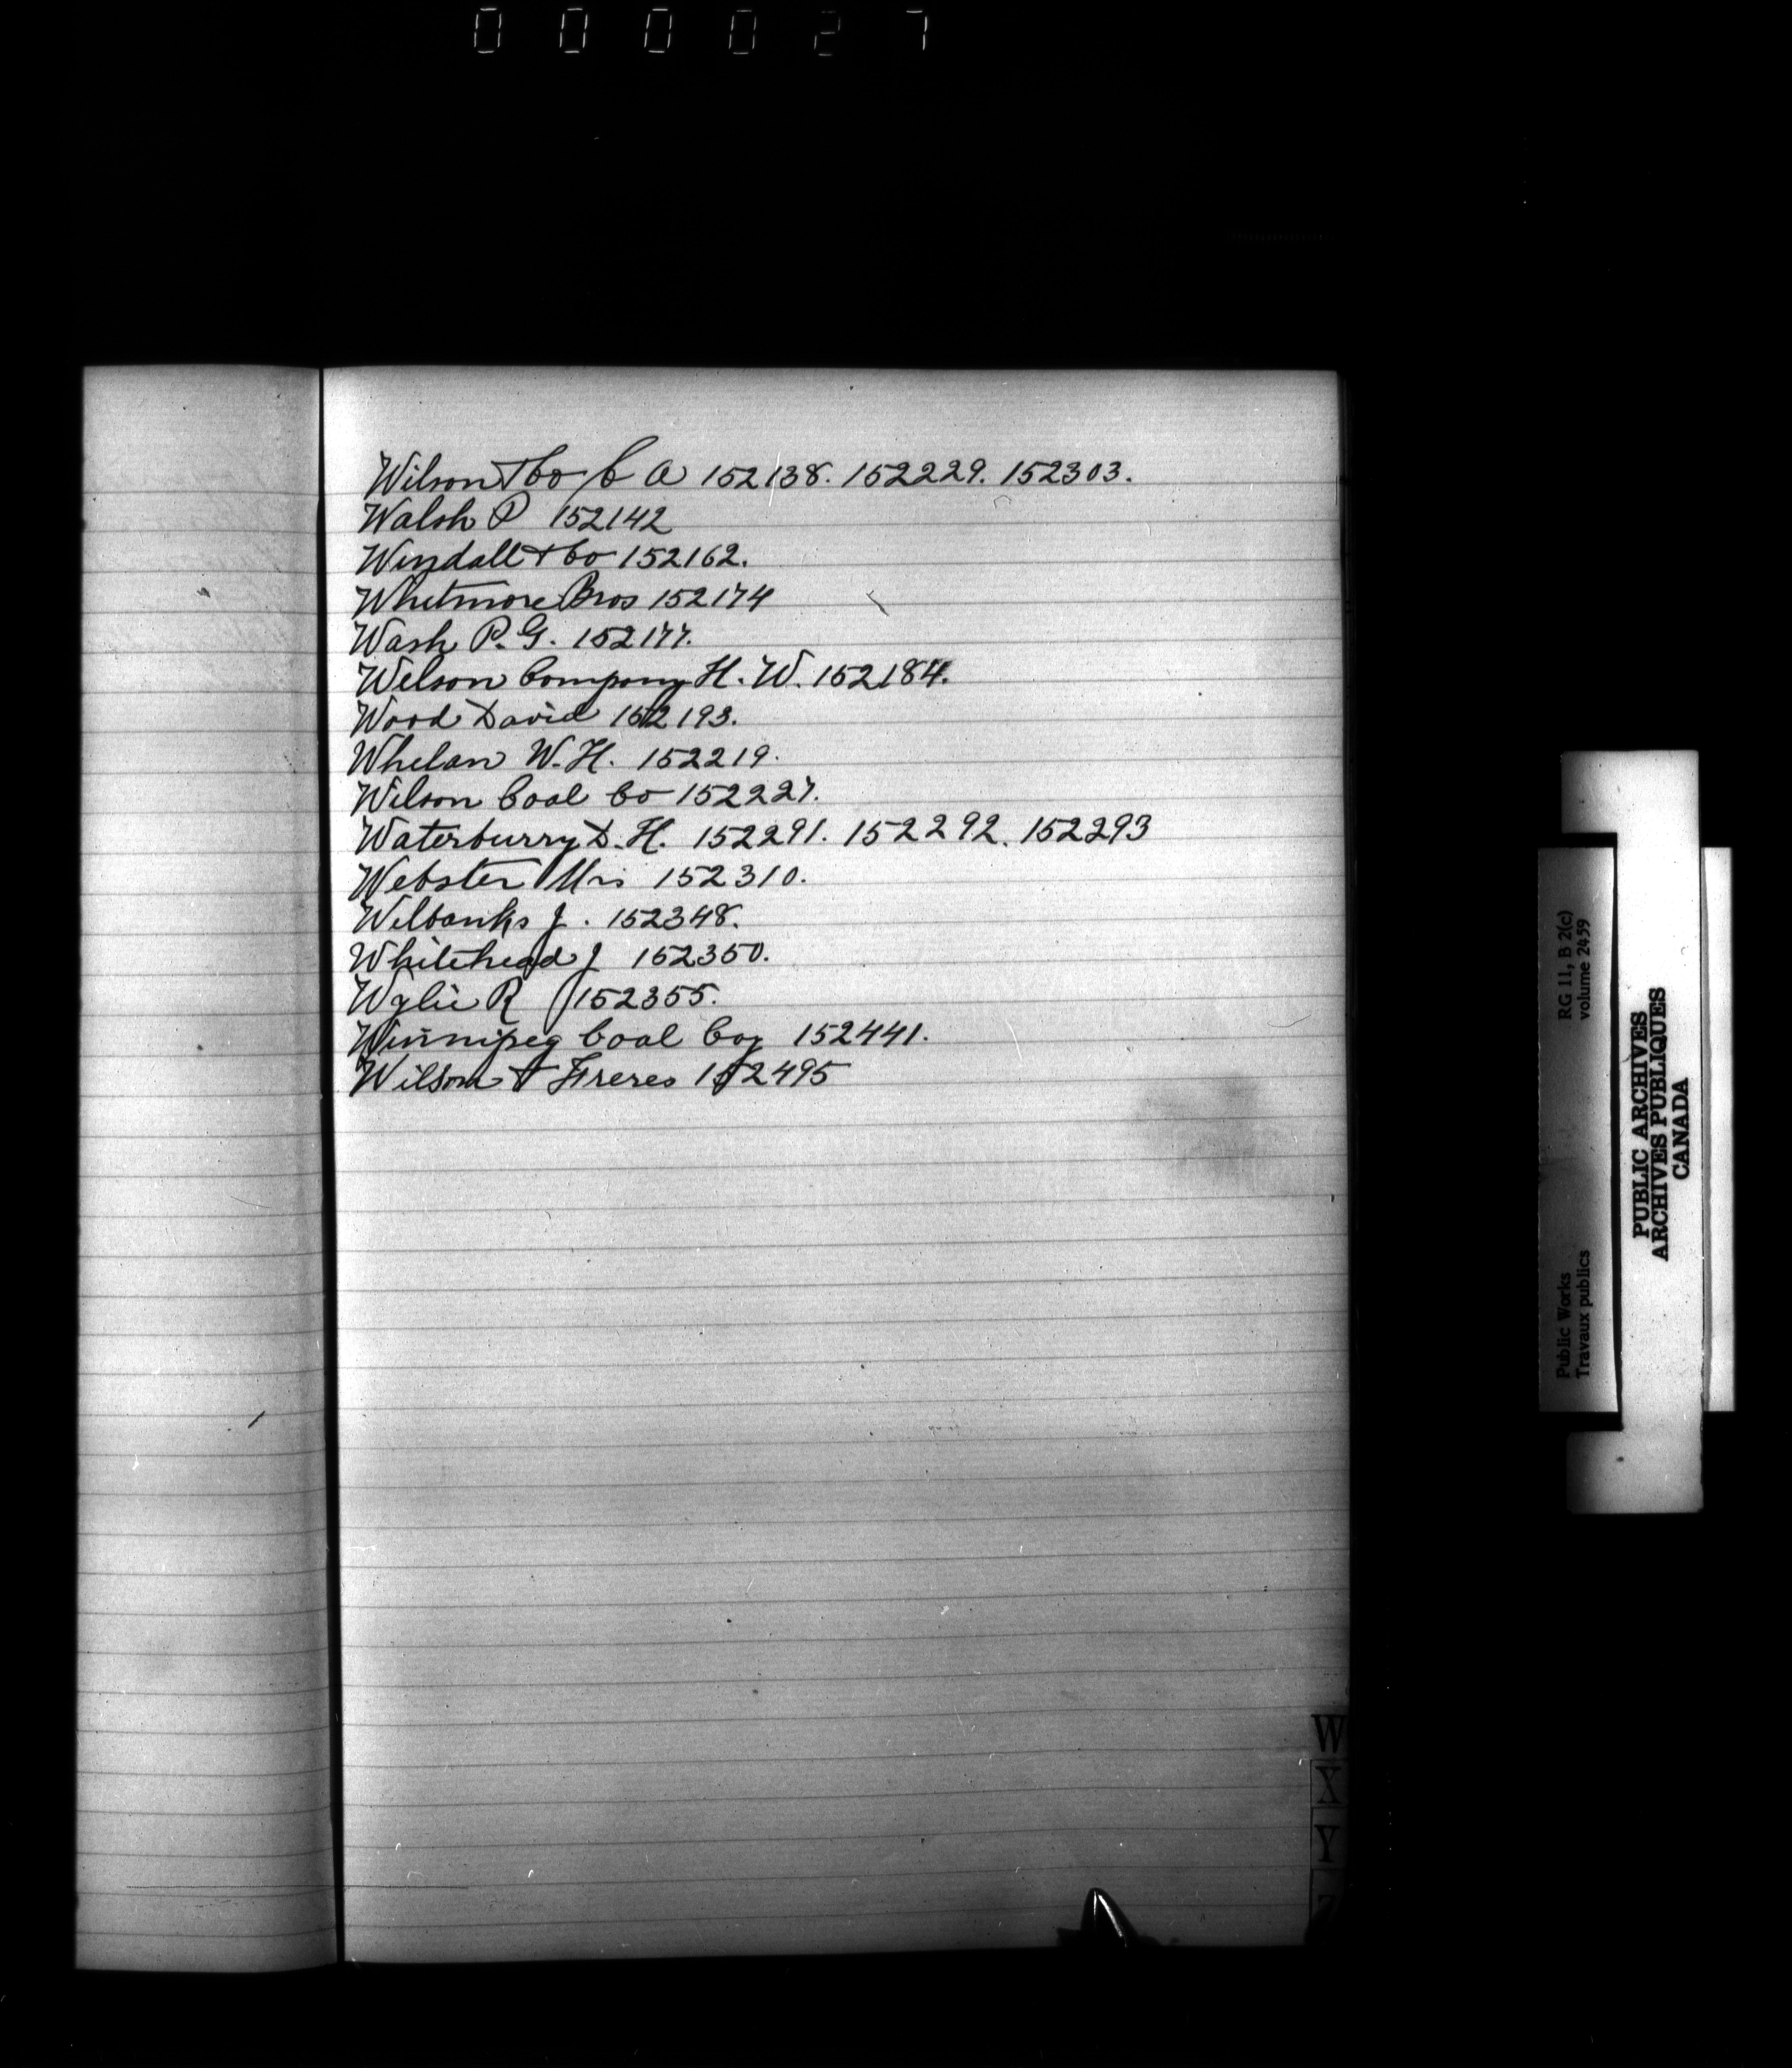 000027
Wilson & Co C A 152138. 152229. 152303.
Walsh P 152142
Windall & Co 152162.
Whitmore Bros 152174
Wash P. G. 152177.
Wilson Company H. W. 152184.
Wood David 152193.
Whelan W. H. 152219.
Wilson Coal Co 152227.
Waterburry D. H. 152291. 152292. 152293
Webster Mrs 152310.
Wilbanks J. 152348.
Whitehead J 152350.
Wylie R 152355.
Winnipeg Coal Coy 152441.
Wilson & Freres 152495
W
X
Y
Z
Public Works
Travaux publics
RG 11, B 2(c)
volume 2459
PUBLIC ARCHIVES
ARCHIVES PUBLIQUES
CANADA